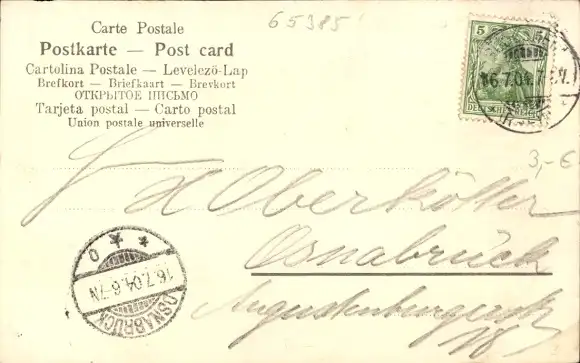 Carte Postale
Postkarte — Post card
Cartolina Postale — Levelező-Lap
Brefkort — Briefkaart — Brevkort
ОТКРЫТОЕ ПИСЬМО
Tarjeta postal — Carto postal
Union postale universelle
65385
5
DEUTSCHES REICH
16.7.04.7
3,- €
H Oberköller
Osnabrück
Augustenburgerstr
18
16.7.04.6-7N
OSNABRÜCK